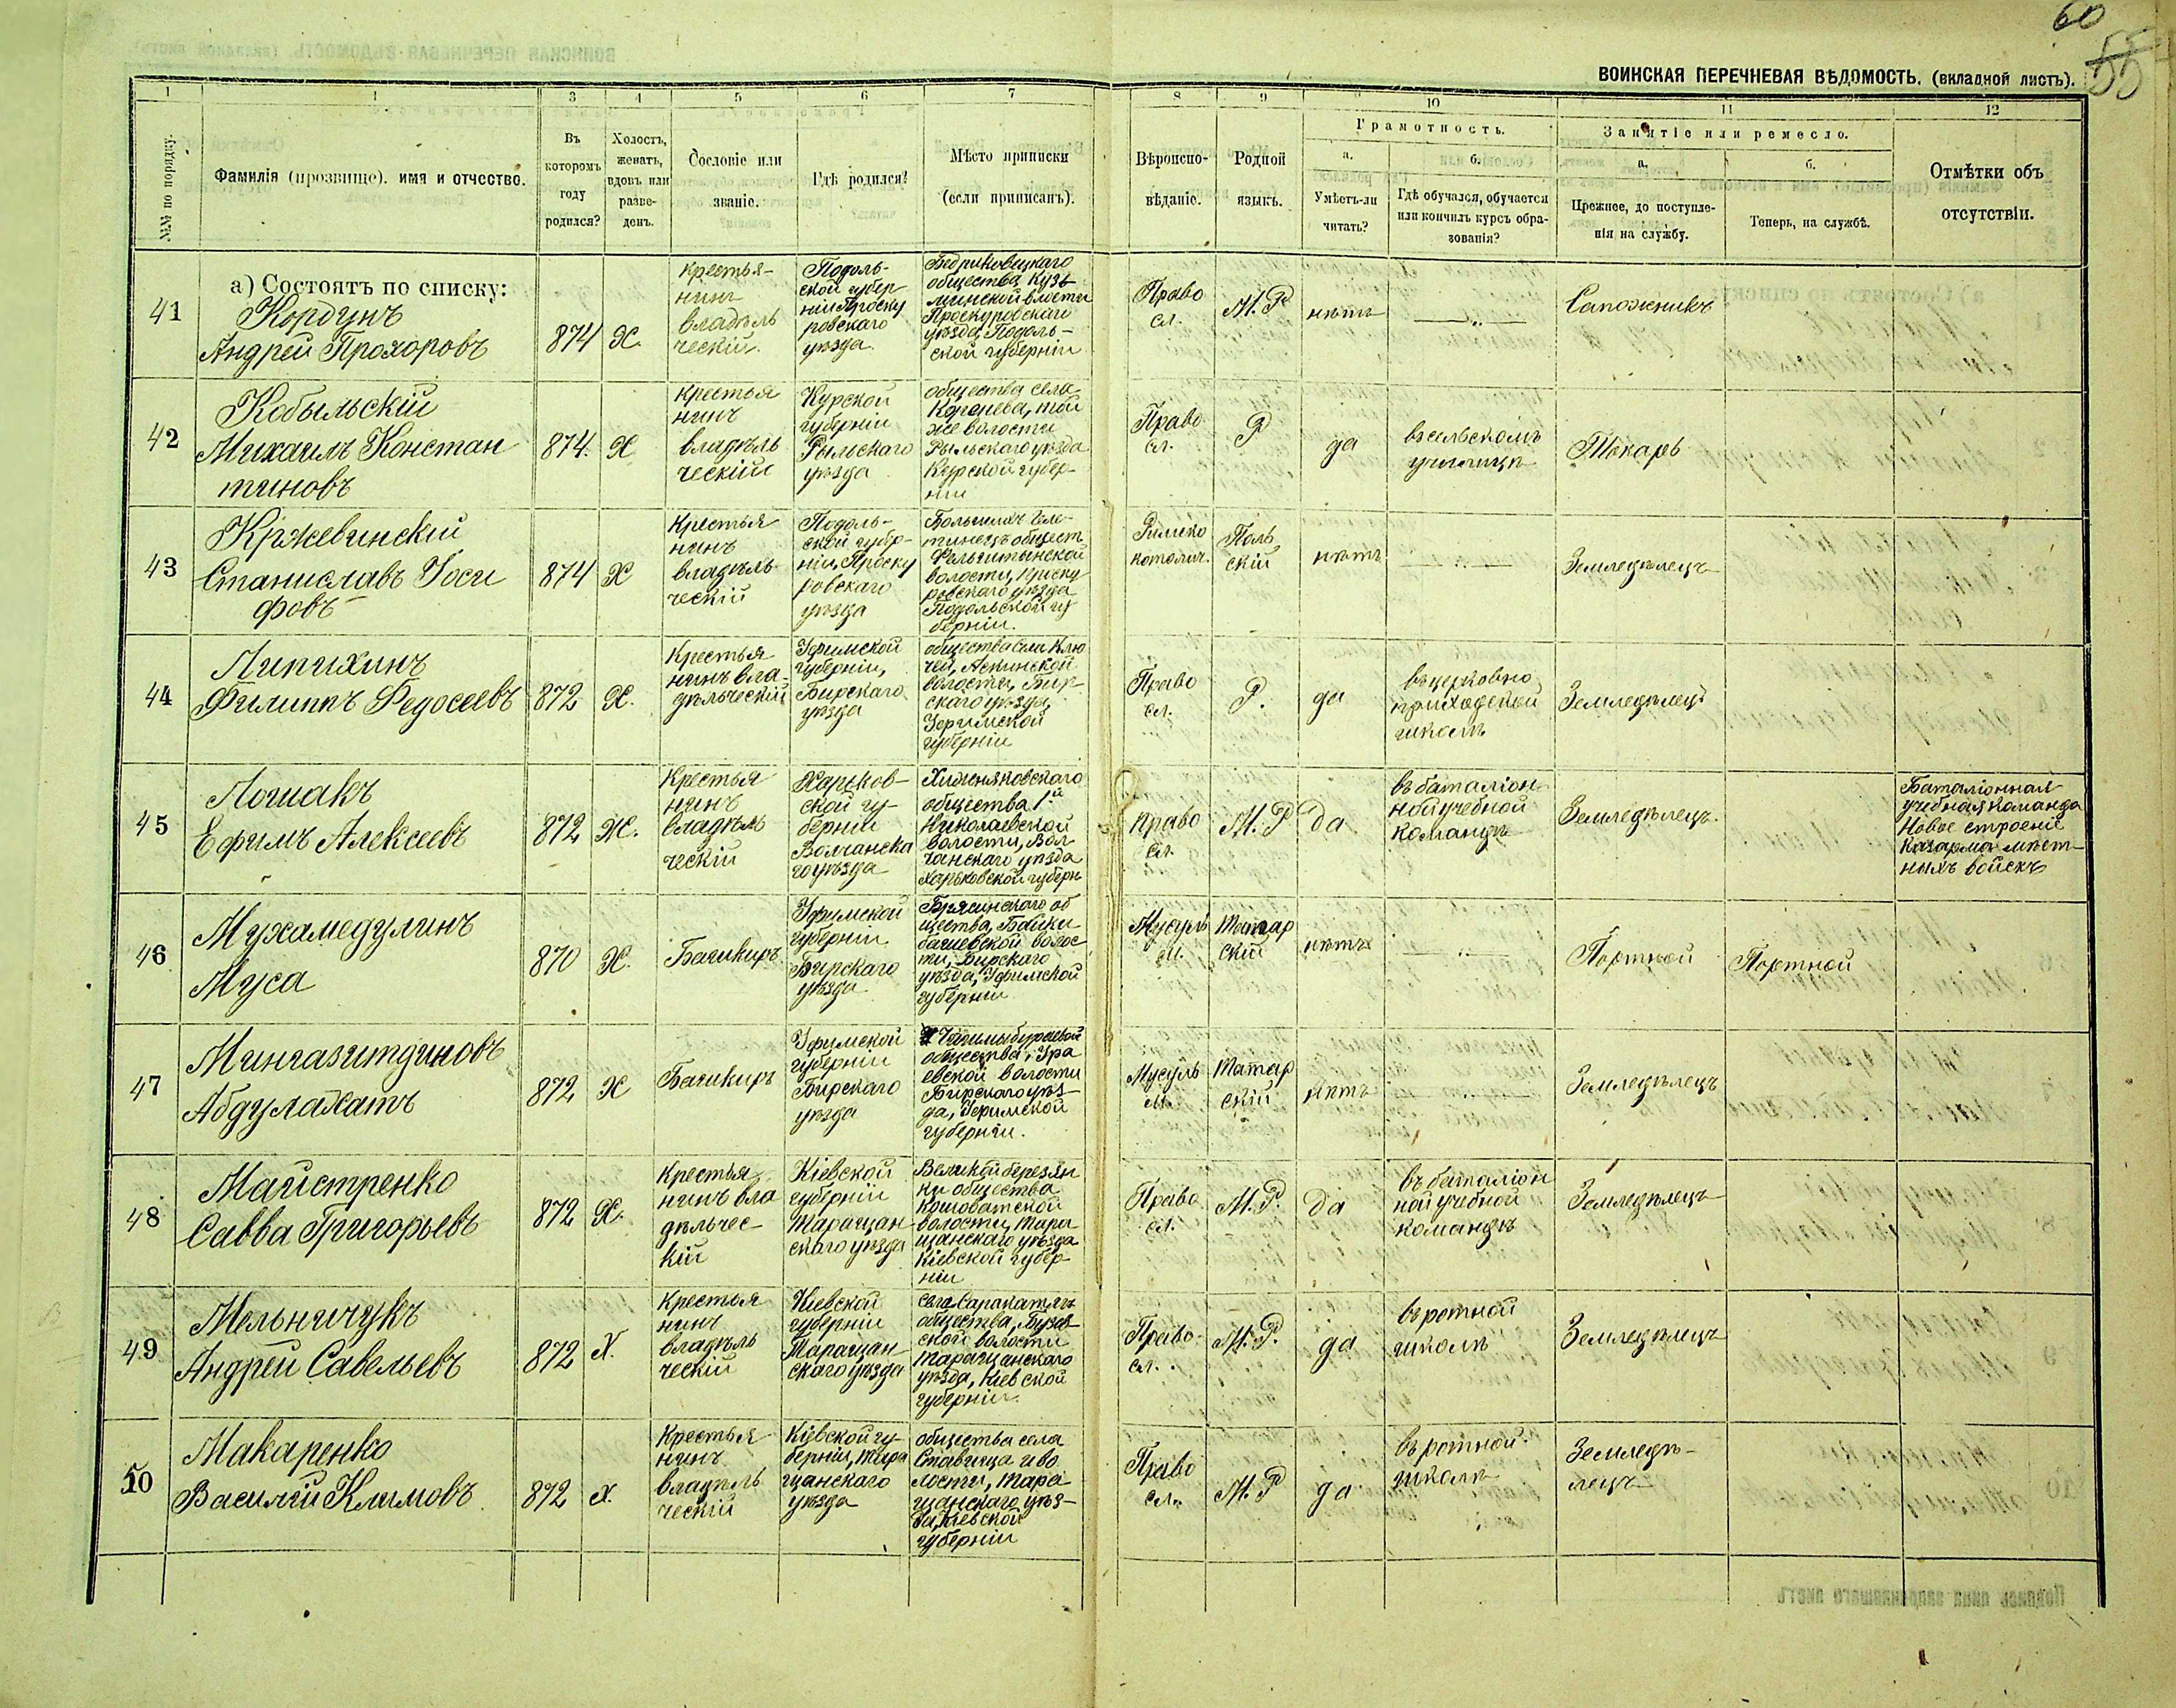 60
55
ВОИНСКАЯ ПЕРЕЧНЕВАЯ ВѢДОМОСТЬ. (вкладной листъ).
1
3
4
5
6
7
8
9
10
11
12
№№ по порядку.
Фамилія (прозвище). имя и отчество.
Въ
которомъ
году
родился?
Холостъ,
женатъ,
вдовъ или
разве-
денъ.
Сословіе или
званіе.
Гдѣ родился?
Мѣсто приписки
(если приписанъ).
Вѣроиспо-
вѣданіе.
Родной
языкъ.
Грамотность.
а.
Умѣетъ-ли
читать?
б.
Гдѣ обучался, обучается
или кончилъ курсъ обра-
зованія?
Занятіе или ремесло.
а.
Прежнее, до поступле-
нія на службу.
б.
Теперь, на службѣ.
Отмѣтки объ
отсутствіи.
а) Состоятъ по списку:
41
Кордунъ
Андрей Прохоровъ
874
Х.
крестья-
нинъ
владѣль
ческій.
Подоль-
ской губер
ніи Проску
ровскаго
уѣзда
общества Кузь
минской влости
Проскуровскаго
уѣзда, Подоль-
ской губерніи
Право
сл.
М. Р.
нѣтъ
— „ —
Сапожникъ
42
Кобыльскій
Михаилъ Констан
тиновъ
874.
Х
крестья
нинъ
владѣль
ческій
Курской
губерніи
Рыльскаго
уѣзда
общества села
Коренева, той
же волости
Рыльскаго уѣзда
Курской губер-
ніи
Право
сл.
Р
да
въ сельскомъ
училищѣ
Токарь
43
Кржевинскій
Станиславъ Іоси
фовъ
874
Х
крестья
нинъ
владѣль-
ческій
Подоль-
ской губер-
ніи, Проску
ровскаго
уѣзда
общест
Фельштынской
волости, Проску
ровскаго уѣзда
Подольской гу
берніи.
Римско
католич.
Поль
скій
нѣтъ
— „ —
Земледѣлецъ
44
Липихинъ
Филиппъ Федосеевъ
872
Х.
Крестья
нинъ вла-
дѣльческій
Уфимской
губерніи,
Бирскаго
уѣзда
общества села Клю
чей, Аскинской
волости, Бир-
скаго уѣзда,
Уфимской
губерніи
Право
сл.
Р.
да
въ церковно
приходской
школѣ
Земледѣлецъ
45
Лошакъ
Ефимъ Алексеевъ
872
Ж.
Крестья
нинъ
владѣль
ческій
Харьков-
ской гу-
берніи
Волчанска
го уѣзда
Хижняковскаго
общества 1.й
Николаевской
волости, Вол
чанскаго уѣзда
Харьковской губерн
Право
сл.
М. Р
Да
въ баталіон
ной учебной
командѣ
Земледѣлецъ.
Баталіонная
учебная команда
Новое строеніе
Казарма мѣст-
ныхъ войскъ
46
Мухамедулинъ
Муса
870
Х.
Башкиръ
Уфимской
губерніи
Бирскаго
уѣзда
об
щества,
волос
ти, Бирскаго
уѣзда, Уфимской
губерніи
Мусуль
м.
Татар
скій
нѣтъ
— „ —
Портной
Портной
47
Мингазитдиновъ
Абдулахатъ
872
Х
Башкиръ
Уфимской
губерніи
Бирскаго
уѣзда
общества, Ура
евской волости
Бирскаго уѣз-
да, Уфимской
губерніи.
Мусуль
м.
Татар
скій
нѣтъ
— „ —
Земледѣлецъ
48
Майстренко
Савва Григорьевъ
872
Х.
Крестья
нинъ вла
дѣльчес-
кій
Кіевской
губерніи
Таращан
скаго уѣзда
Великой березян
ки общества
Кошоватской
волости, Тара
щанскаго уѣзда
Кіевской губер-
ніи
Право
сл.
М. Р.
Да
въ баталіон
ной учебной
командѣ
Земледѣлецъ
49
Мельничукъ
Андрей Савельевъ
872
Х.
Крестья
нинъ
владѣль
ческій
Кіевской
губерніи
Таращан-
скаго уѣзда
общества,
ской волости
Таращанскаго
уѣзда, Кіевской
губерніи.
Право
сл.
М. Р.
да
въ ротной
школѣ
Земледѣлецъ
50
Макаренко
Василій Климовъ
872
х.
Крестья
нинъ
владѣль
ческій
Кіевской гу-
берніи, Тара
щанскаго
уѣзда
общества села
Ставища и во
лости, Тара
щанскаго уѣз-
да, Кіевской
губерніи
Право
сл.
М. Р
да
въ ротной
школѣ
Земледѣ-
лецъ